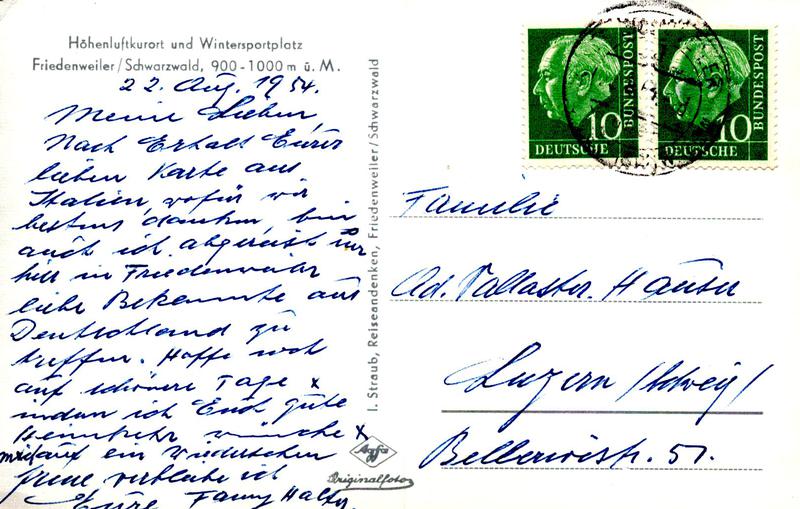 Höhenluftkurort und Wintersportplatz
Friedenweiler/Schwarzwald, 900-1000 m ü. M.
22. Aug. 1954.
Meine Lieben,
Nach Erhalt Eurer
lieben Karte aus
Italien, wofür wir
bestens danken, bin
auch ich abgereist um
hier in Friedenweiler
liebe Bekannte aus
Deutschland zu
treffen. Hoffe noch
auf schönere Tage x
indem ich Euch gute
Heimkehr wünsche x
mich auf ein Wiedersehen
freue verbleibe ich
Eure Fanny Halter
I. Straub, Reiseandenken, Friedenweiler/Schwarzwald
Agfa
Originalfoto
10
DEUTSCHE
BUNDESPOST
10
DEUTSCHE
BUNDESPOST
Familie
Ad. Vallaster-Hauser
Luzern /Schweiz/
Bellerivestr. 51.